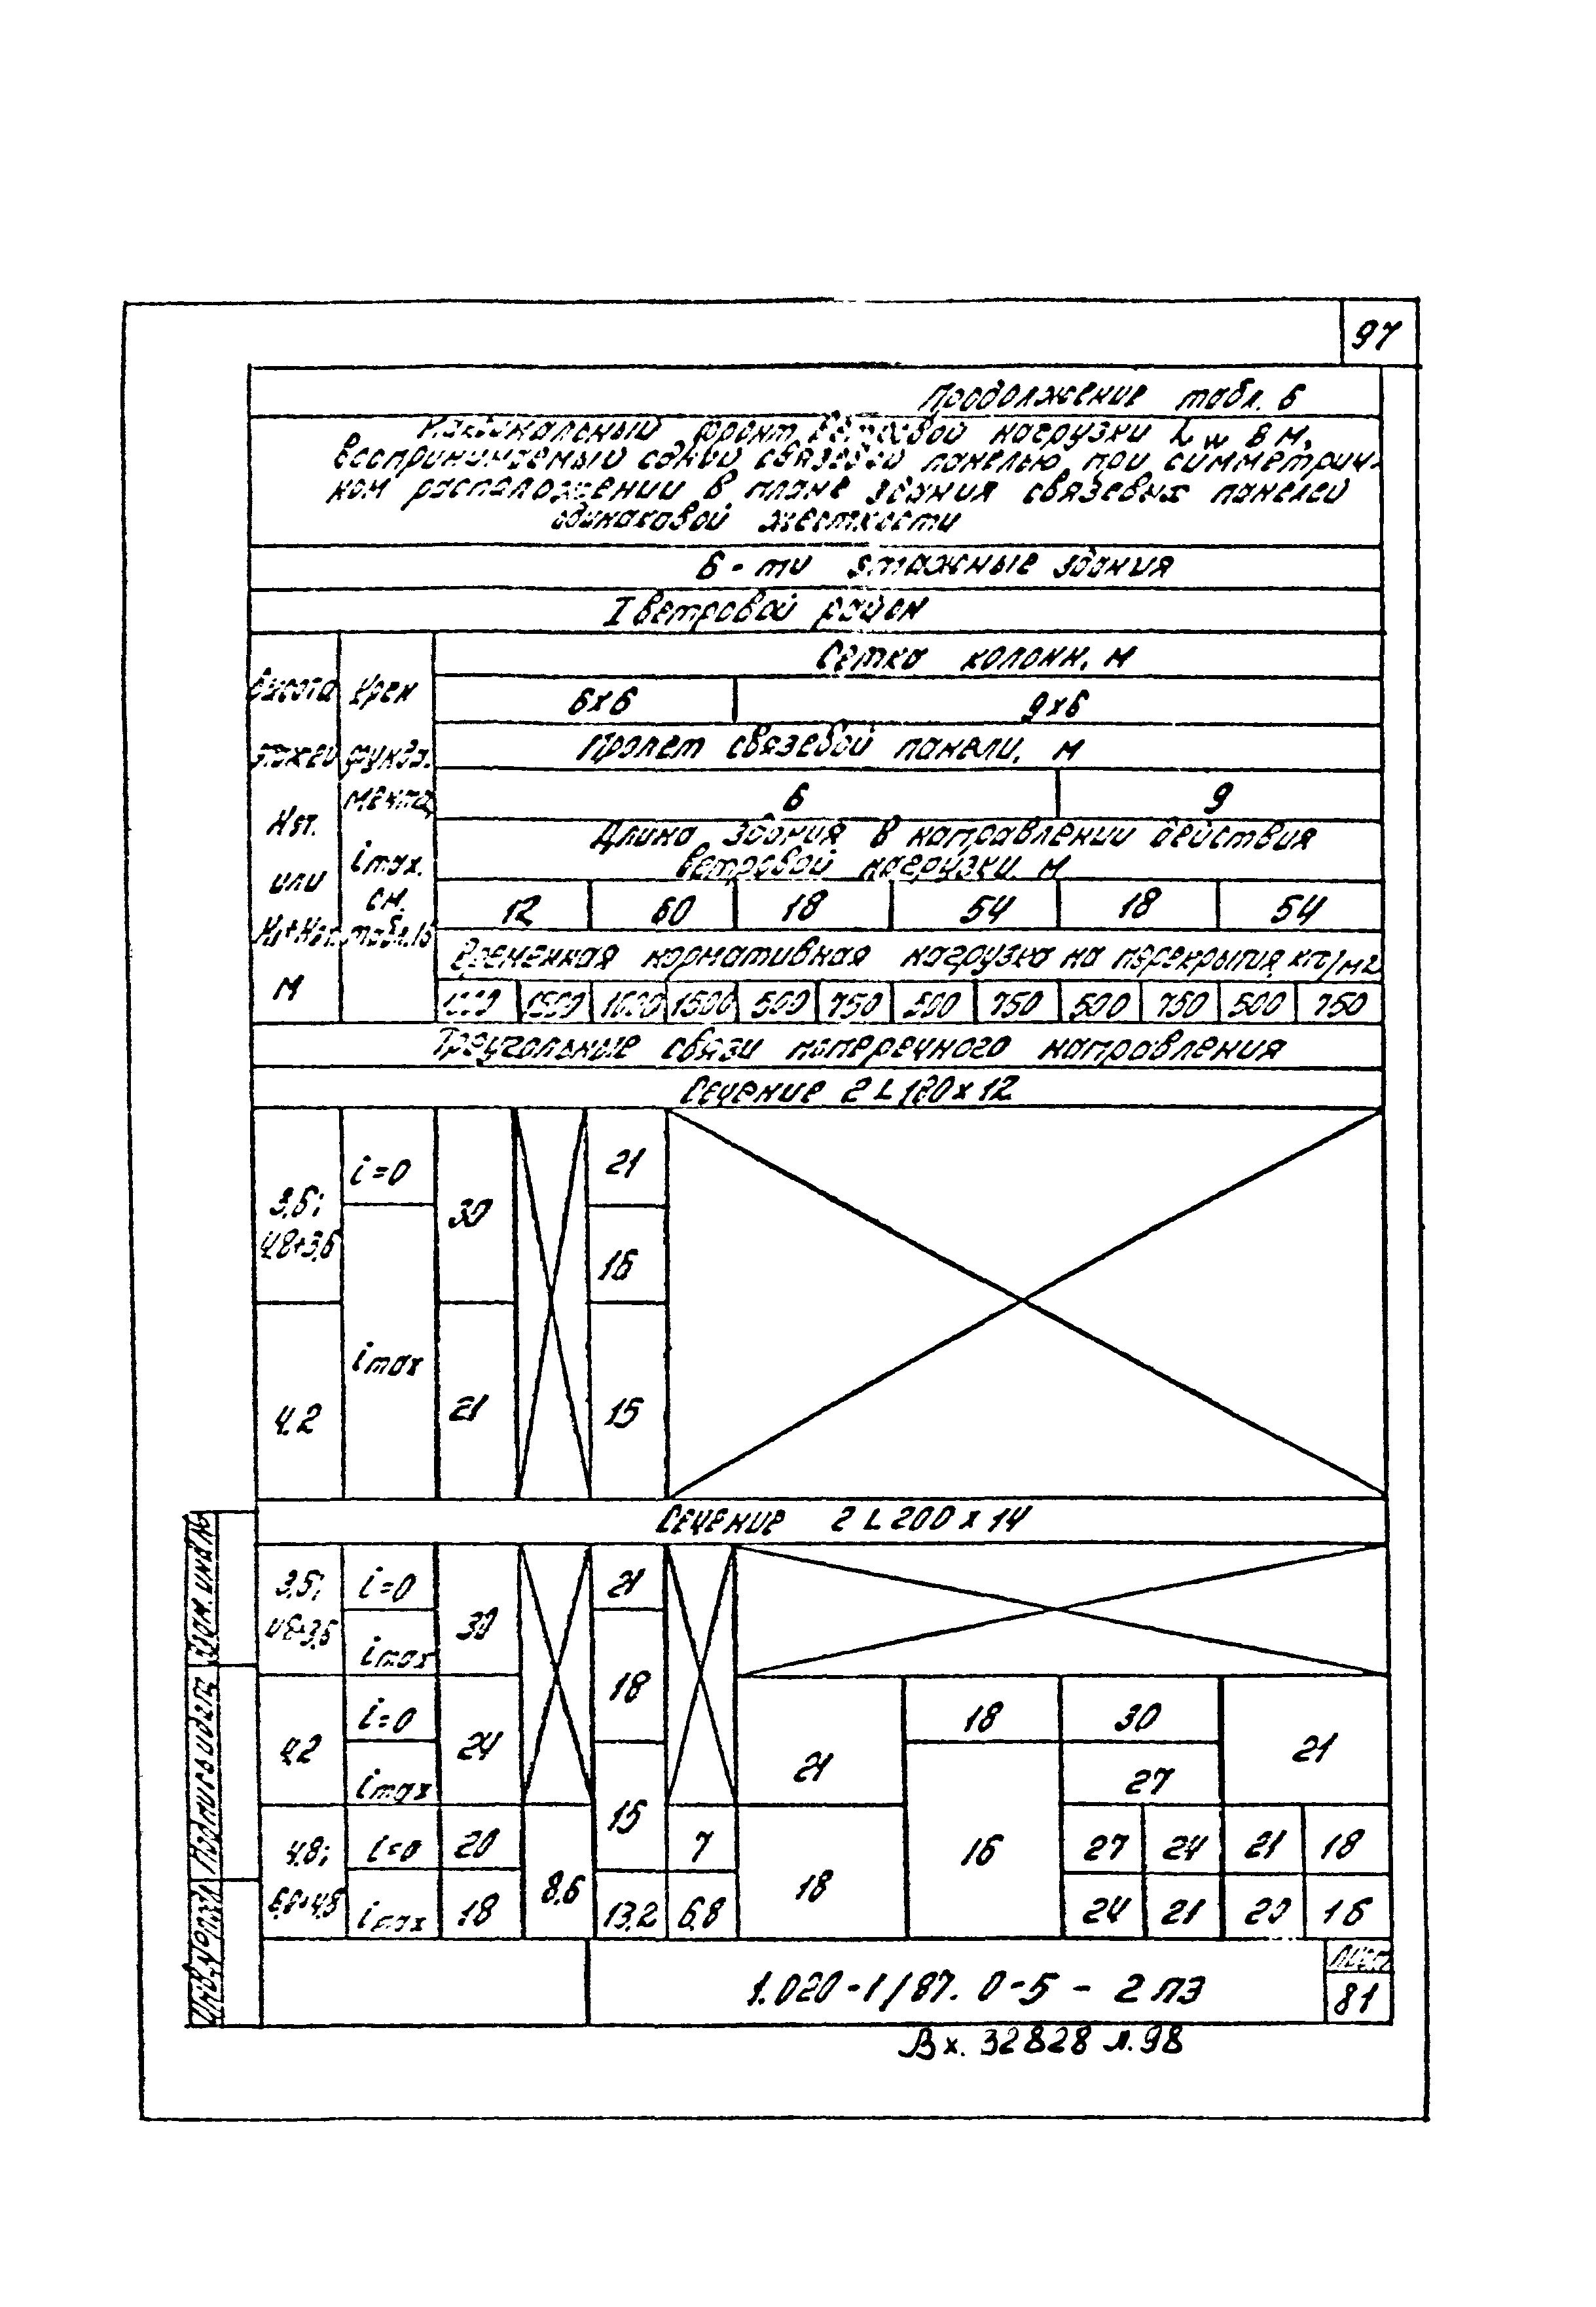 97
Продолжение табл. 6
Максимальный фронт ветровой нагрузки Lw в м,
воспринимаемый одной связевой панелью при симметрич-
ном расположении в плане здания связевых панелей
одинаковой жесткости
6-ти этажные здания
I ветровой район
Высота этажей Нэт. или М
Крен фундамента, imax. см. табл. 16
Сетка колонн, м
6х6 9х6
Пролет связевой панели, м
6 9
Длина здания в направлении действия
ветровой нагрузки м
12 60 18 54 18 54
Временная нормативная нагрузка на перекрытия, кгс/м2
1000 1500 1000 1500 500 750 500 750 500 750 500 750
Треугольные связи поперечного направления
Сечение 2 L 180 х 12
3,6; 4,8+3,6 i=0 30 21
16
4.2 imax 21 15
Сечение 2 L 200 х 14
3,6; 4,8+3,6 i=0 30 21
imax 18
4,2 i=0 24 21 18 30 21
imax 15 16 27
4,8; 6,0+4,8 i=0 20 8,6 7 18 27 24 21 18
imax 18 13,2 6,8 24 21 20 16
Взам. инв. №
Подпись и дата
Инв. № подл.
1.020-1/87. 0-5 - 2 ПЗ
Лист
81
Вх. 32828 л. 98